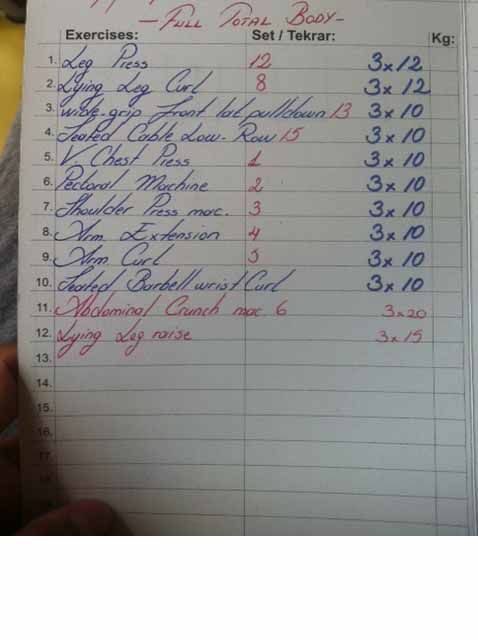 - FULL TOTAL BODY -
Exercises: Set / Tekrar: Kg:
1. Leg Press 12 3x12
2. Lying Leg Curl 8 3x12
3. wide-grip front lat pulldown 13 3x10
4. Seated Cable Low-Row 15 3x10
5. V. Chest Press 1 3x10
6. Pectoral Machine 2 3x10
7. Shoulder Press mac. 3 3x10
8. Arm Extension 4 3x10
9. Arm Curl 5 3x10
10. Seated Barbell wrist Curl 3x10
11. Abdominal Crunch mac. 6 3x20
12. Lying Leg raise 3x15
13.
14.
15.
16.
17.